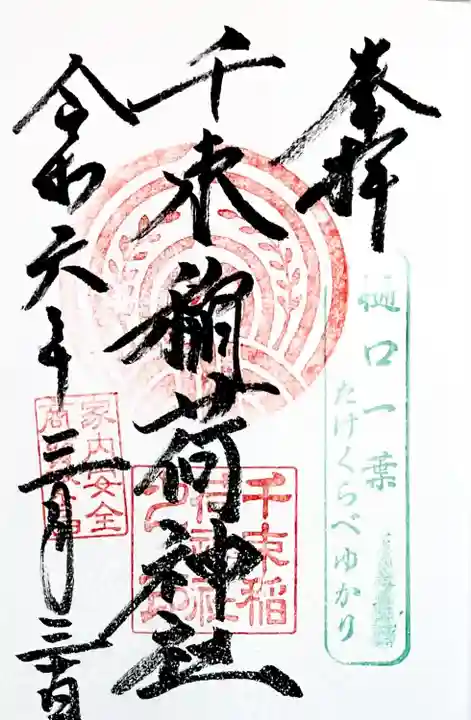 奉拝
樋口一葉
たけくらべゆかり
千束稲荷神社
千束稲
荷神社
家内安全
令和六年三月三十日